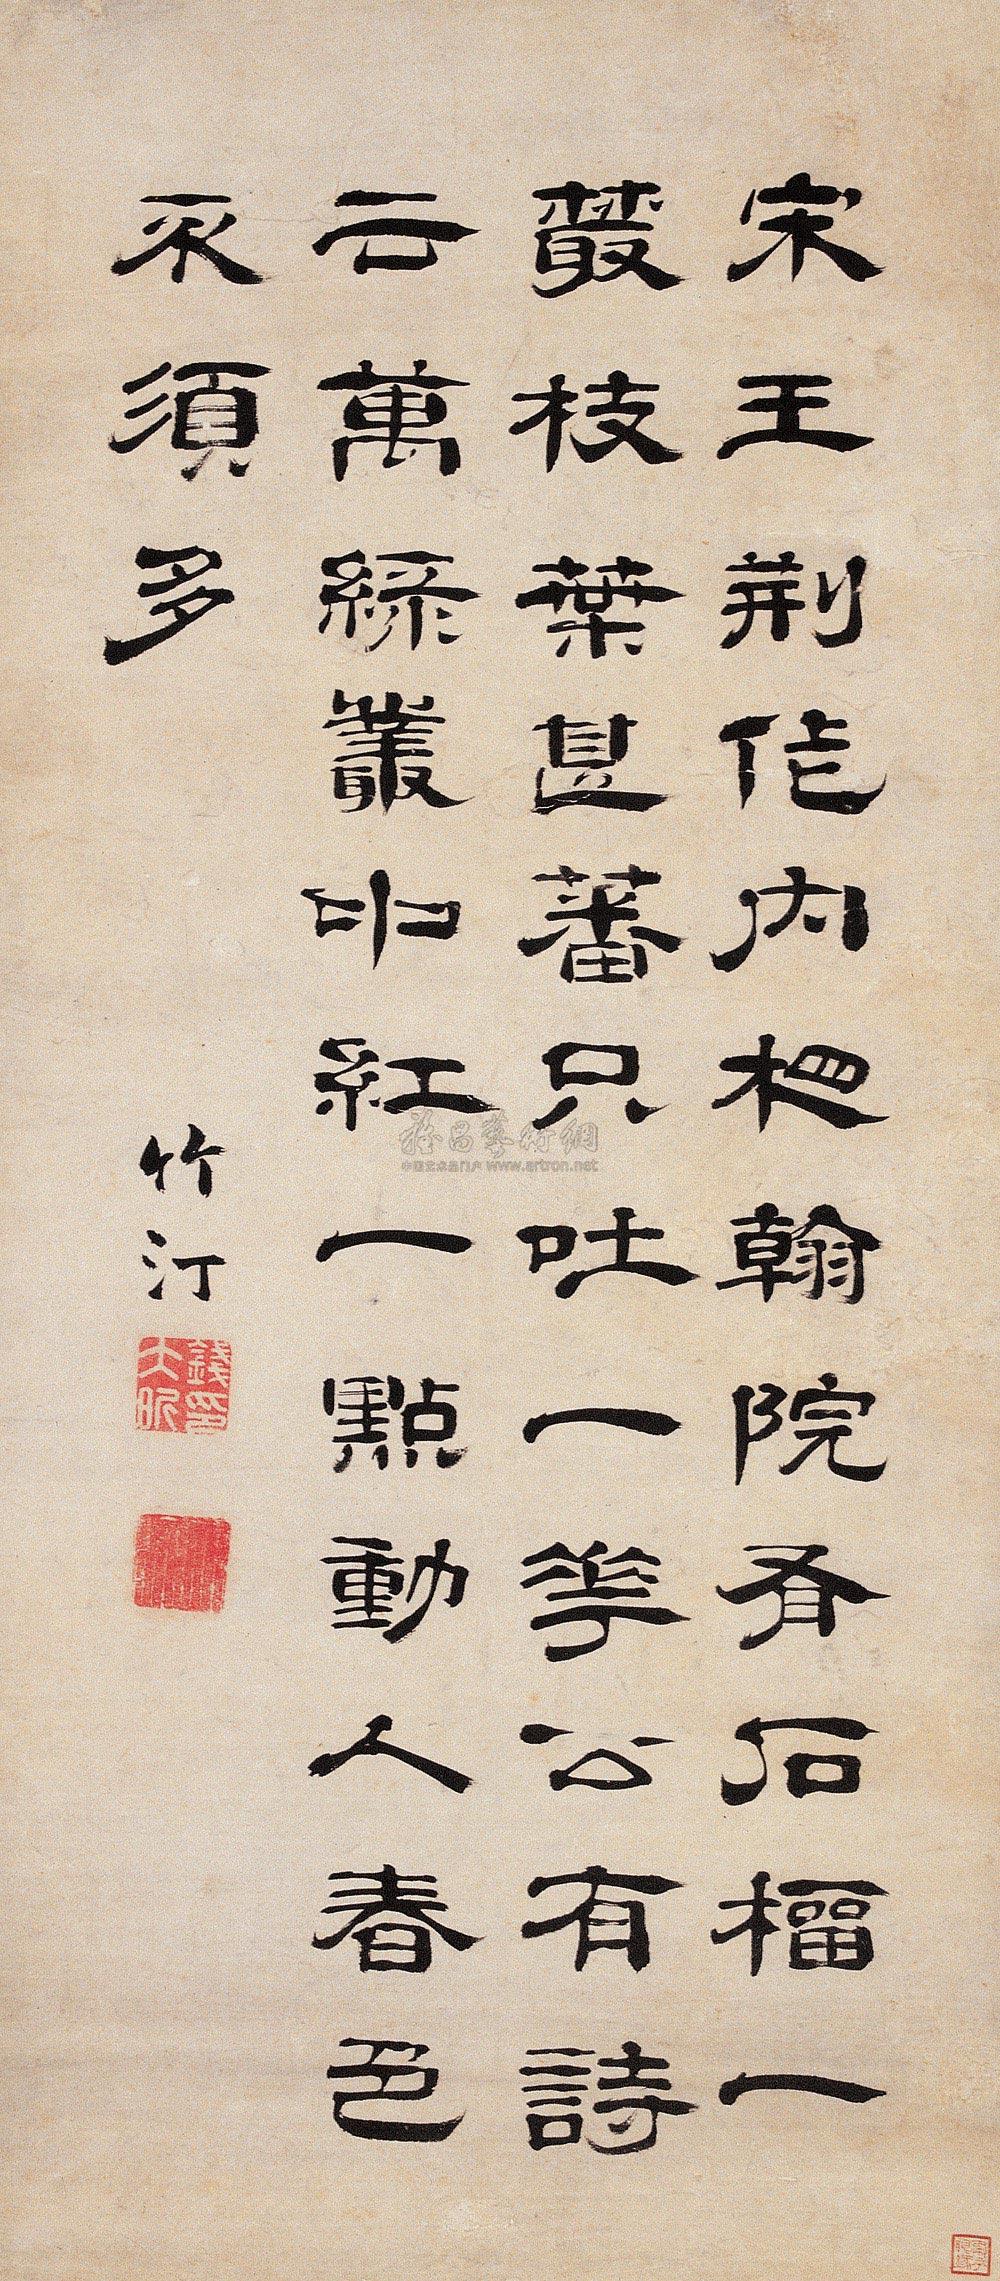 宋王荆作内相翰院有石榴一
叢枝葉甚蕃只吐一華公有詩
云萬綠叢中紅一點動人春色
不須多
竹汀
錢大昕印
雅昌藝術網
www.artron.net